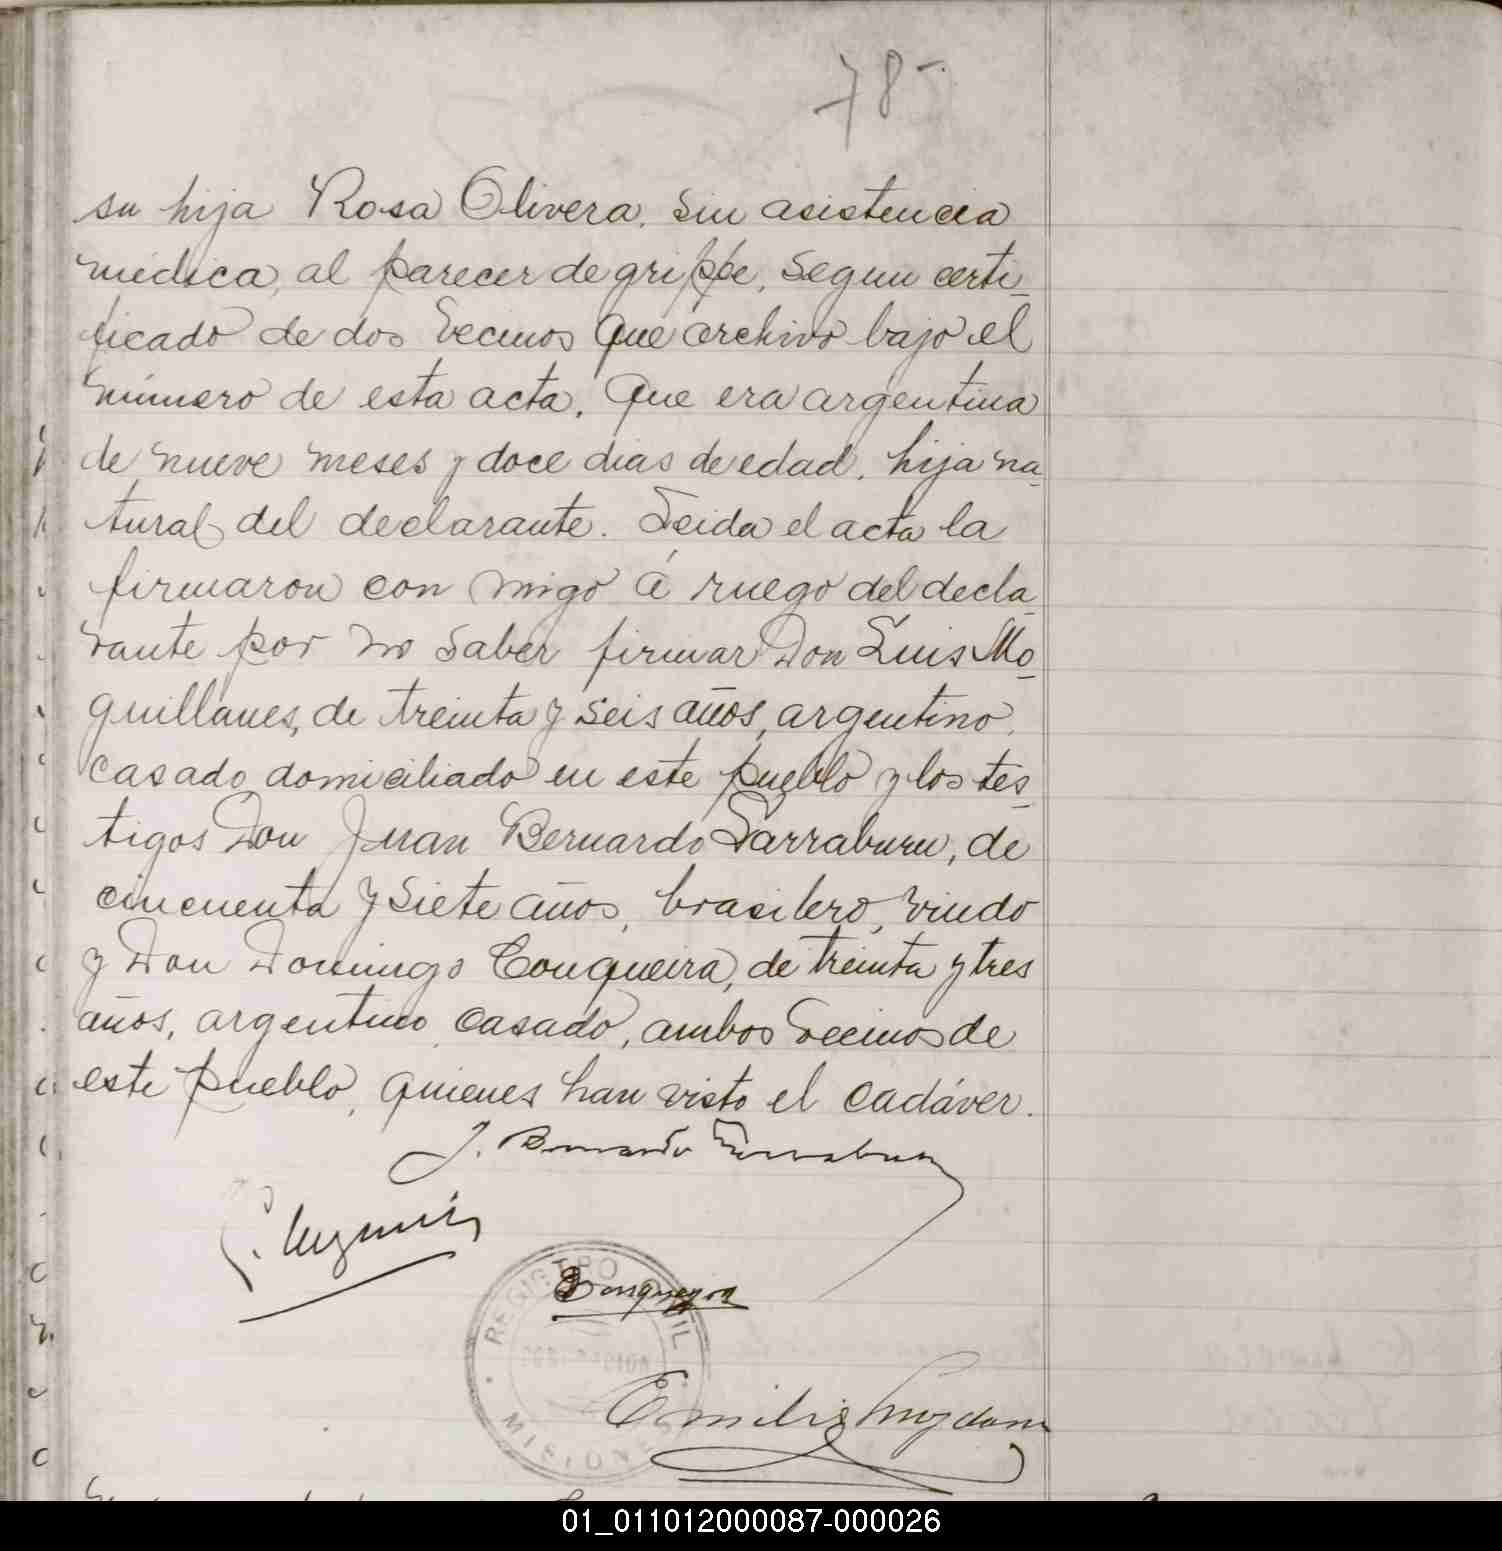 78-
su hija Rosa Olivera. sin asistencia
médica, al parecer de grippe, segun certi-
ficado de dos vecinos que archivo bajo el
número de esta acta. Que era argentina
de nueve meses y doce dias de edad. hija na-
tural del declarante. Leida el acta la
firmaron con migo á ruego del decla-
rante por no saber firmar Don Luis Mo-
quillanes, de treinta y seis años, argentino.
casado domiciliado en este pueblo y los tes-
tigos Don Juan Bernardo Larraburu, de
cincuenta y siete años, brasilero, viudo
y Don Domingo Conqueira, de treinta y tres
años, argentino casado, ambos vecinos de
este pueblo, quienes han visto el cadáver.
J. Bernardo Larraburu
REGISTRO CIVIL
MISIONES
Emilio
01_011012000087-000026